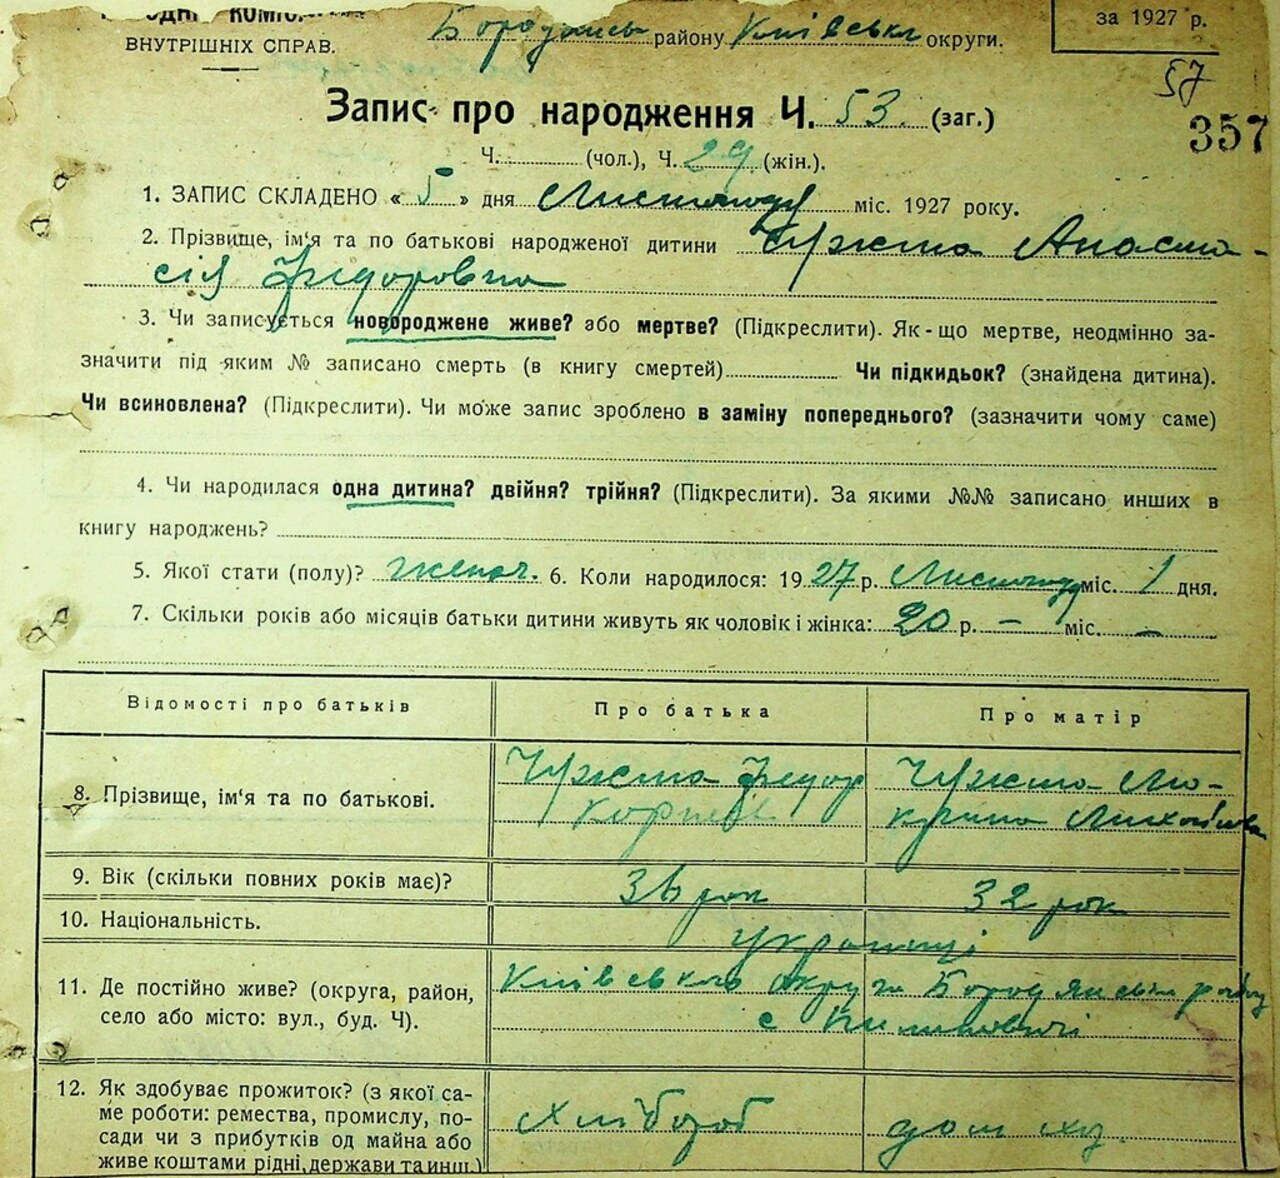 ВНУТРІШНІХ СПРАВ.
району Київська округи.
за 1927 р.
57
357
Запис про народження Ч. 53. (заг.)
Ч. (чол.), Ч. 29 (жін.).
1. ЗАПИС СКЛАДЕНО « 5 » дня Листопаду міс. 1927 року.
2. Прізвище, ім'я та по батькові народженої дитини Чужта Анаста-
сія Федоровна
3. Чи записується новороджене живе? або мертве? (Підкреслити). Як-що мертве, неодмінно за-
значити під яким № записано смерть (в книгу смертей) Чи підкидьок? (знайдена дитина).
Чи всиновлена? (Підкреслити). Чи може запис зроблено в заміну попереднього? (зазначити чому саме)
4. Чи народилася одна дитина? двійня? трійня? (Підкреслити). За якими №№ записано инших в
книгу народжень?
5. Якої стати (полу)? жіноч. 6. Коли народилося: 1927 р. Листопаду міс. 1 дня.
7. Скільки років або місяців батьки дитини живуть як чоловік і жінка: 20 р. — міс. —
Відомості про батьків
Про батька
Про матір
8. Прізвище, ім'я та по батькові.
Чужта Федор
Корній
Чужта Мо-
крина Михайловна
9. Вік (скільки повних років має)?
36 рок
32 рок
10. Національність.
українці
11. Де постійно живе? (округа, район,
село або місто: вул., буд. Ч).
Київського округи Бородянська району
с
12. Як здобуває прожиток? (з якої са-
ме роботи: ремества, промислу, по-
сади чи з прибутків од майна або
живе коштами рідні, держави та инш.)
хлібороб
дом хаз.